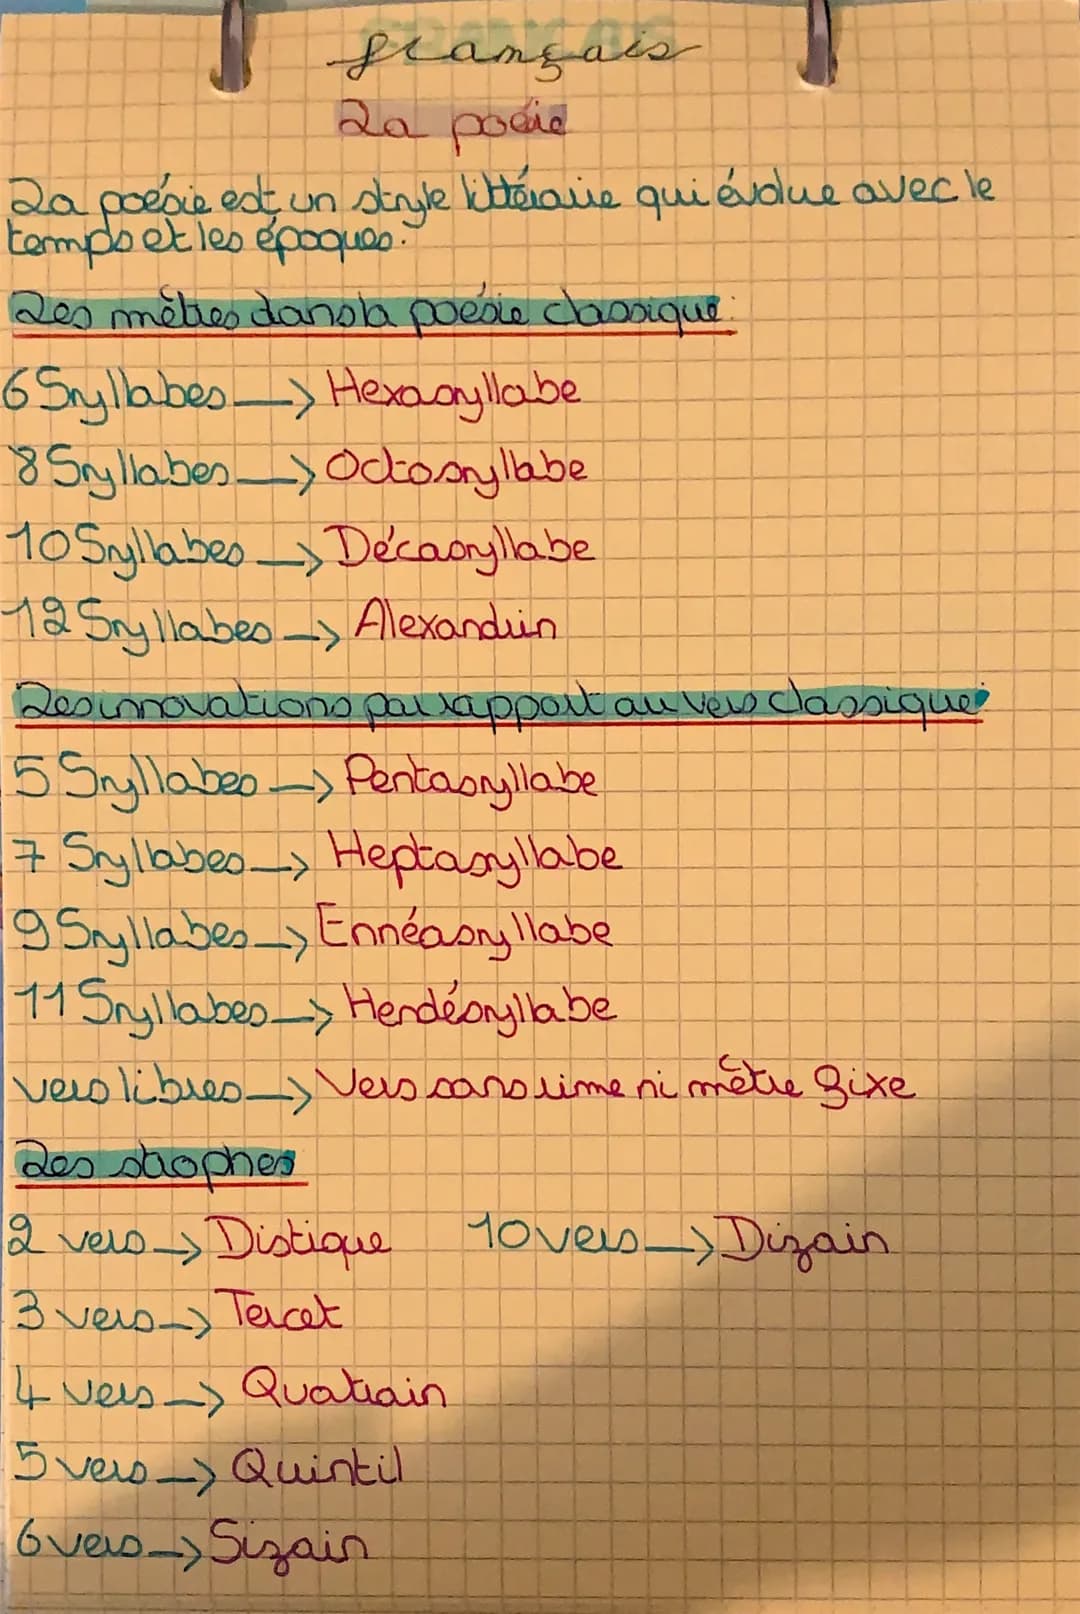 français
La poésie
La poésie est un style littéraire qui évolue avec le
temps et les époques.
Les mètres dans la poésie classique:
6 Syllabes → Hexasyllabe
8 Syllabes → Octosyllabe
10 Syllabes → Décasyllabe
12 Syllabes → Alexandrin
Les innovations par rapport au vers classique:
5 Syllabes → Pentasyllabe
7 Syllabes → Heptasyllabe
9 Syllabes → Ennéasyllabe
11 Syllabes → Hendésyllabe
vers libres → Vers sans rime ni mètre fixe
Les strophes
2 vers → Distique 10 vers → Dizain
3 vers → Tercet
4 vers → Quatrain
5 vers → Quintil
6 vers → Sizain